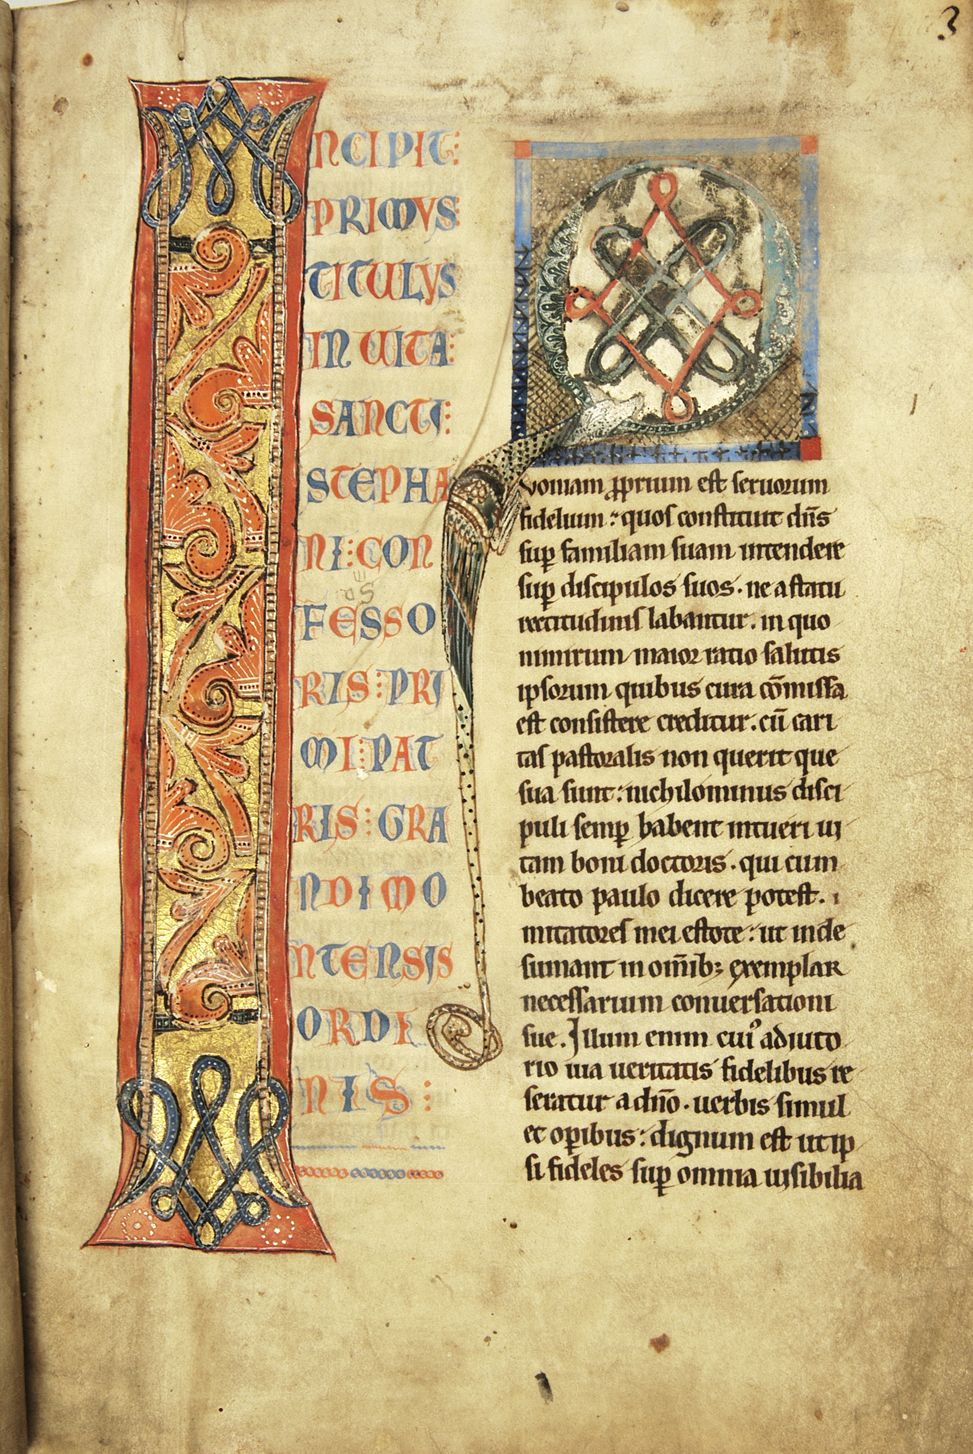 3
INCIPIT:
PRIMVS
TITULUS
IN VITA
SANCTI:
STEPHA
NI: CON
FESSO
RIS: PRI
MI: PAT
RIS: GRA
NDIMO
NTENSIS
ORDI
NIS:
Quoniam ꝓprium est seruorum
fidelium : quos constituit dñs
suꝑ familiam suam intendere
suꝑ discipulos suos · ne a statu
rectitudinis labantur · in quo
nimirum maior ratio salutis
ipsorum quibus cura cõmissa
est consistere creditur · cũ cari
tas pastoralis non querit que
sua sunt : nichilominus disci
puli semꝑ habent intueri ui
tam boni doctoris · qui cum
beato paulo dicere potest · i
mitatores mei estote : ut inde
sumant in om̃ibꝫ exemplar
necessarium conuersationi
sue . Illum enim cuiꝰ adiuto
rio uia ueritatis fidelibus re
seratur a dño · uerbis simul
et oꝑibus : dignum est ut ip
si fideles suꝑ omnia uisibilia